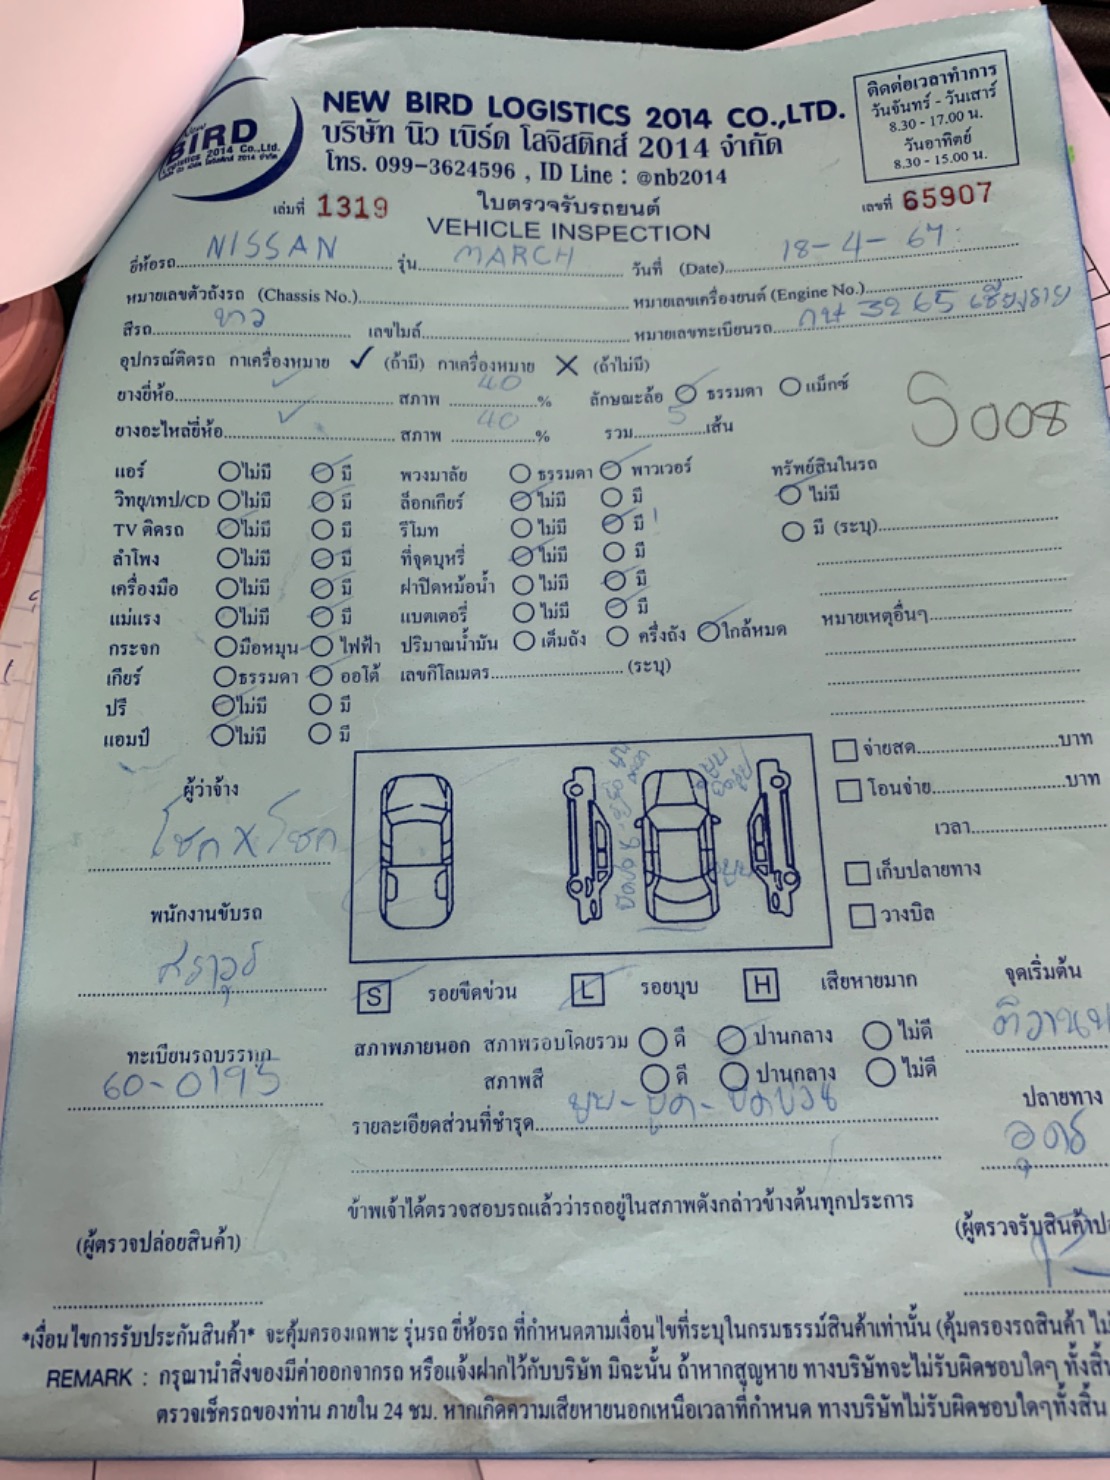 NEW BIRD LOGISTICS 2014 CO.,LTD.
บริษัท นิว เบิร์ด โลจิสติกส์ 2014 จำกัด
โทร. 099-3624596 , ID Line : @nb2014
ติดต่อเวลาทำการ
วันจันทร์ - วันเสาร์
8.30 - 17.00 น.
วันอาทิตย์
8.30 - 15.00 น.
BIRD
Logistics 2014 Co.,Ltd.
เล่มที่ 1319
ใบตรวจรับรถยนต์
เลขที่ 65907
VEHICLE INSPECTION
ยี่ห้อรถ NISSAN รุ่น MARCH วันที่ (Date) 18-4-67
หมายเลขตัวถังรถ (Chassis No.) หมายเลขเครื่องยนต์ (Engine No.)
สีรถ ขาว เลขไมล์ หมายเลขทะเบียนรถ กษ 3265 เชียงราย
อุปกรณ์ติดรถ กาเครื่องหมาย ✓ (ถ้ามี) กาเครื่องหมาย ✗ (ถ้าไม่มี)
ยางยี่ห้อ ✓ สภาพ 40 % ลักษณะล้อ ธรรมดา แม็กซ์
ยางอะไหล่ยี่ห้อ ✓ สภาพ 40 % รวม 5 เส้น
S008
แอร์ ไม่มี มี พวงมาลัย ธรรมดา พาวเวอร์ ทรัพย์สินในรถ
วิทยุ/เทป/CD ไม่มี มี ล็อกเกียร์ ไม่มี มี ไม่มี
TV ติดรถ ไม่มี มี รีโมท ไม่มี มี มี (ระบุ)
ลำโพง ไม่มี มี ที่จุดบุหรี่ ไม่มี มี
เครื่องมือ ไม่มี มี ฝาปิดหม้อน้ำ ไม่มี มี
แม่แรง ไม่มี มี แบตเตอรี่ ไม่มี มี หมายเหตุอื่นๆ
กระจก มือหมุน ไฟฟ้า ปริมาณน้ำมัน เต็มถัง ครึ่งถัง ใกล้หมด
เกียร์ ธรรมดา ออโต้ เลขกิโลเมตร (ระบุ)
ปรี ไม่มี มี
แอมป์ ไม่มี มี
ผู้ว่าจ้าง
โชค X โชค
พนักงานขับรถ
ศราวุธ
ทะเบียนรถบรรทุก
60-0195
(ผู้ตรวจปล่อยสินค้า)
จ่ายสด บาท
โอนจ่าย บาท
เวลา
เก็บปลายทาง
วางบิล
S รอยขีดข่วน L รอยบุบ H เสียหายมาก
สภาพภายนอก สภาพรอบโดยรวม ดี ปานกลาง ไม่ดี
สภาพสี ดี ปานกลาง ไม่ดี
รายละเอียดส่วนที่ชำรุด บุบ-ขูด-ขีดข่วน
จุดเริ่มต้น
ปลายทาง
อุดร
ข้าพเจ้าได้ตรวจสอบรถแล้วว่ารถอยู่ในสภาพดังกล่าวข้างต้นทุกประการ
(ผู้ตรวจรับสินค้าปล
*เงื่อนไขการรับประกันสินค้า* จะคุ้มครองเฉพาะ รุ่นรถ ยี่ห้อรถ ที่กำหนดตามเงื่อนไขที่ระบุในกรมธรรม์สินค้าเท่านั้น (คุ้มครองรถสินค้า ไม่
REMARK : กรุณานำสิ่งของมีค่าออกจากรถ หรือแจ้งฝากไว้กับบริษัท มิฉะนั้น ถ้าหากสูญหาย ทางบริษัทจะไม่รับผิดชอบใดๆ ทั้งสิ้
ตรวจเช็ครถของท่าน ภายใน 24 ชม. หากเกิดความเสียหายนอกเหนือเวลาที่กำหนด ทางบริษัทไม่รับผิดชอบใดๆทั้งสิ้น